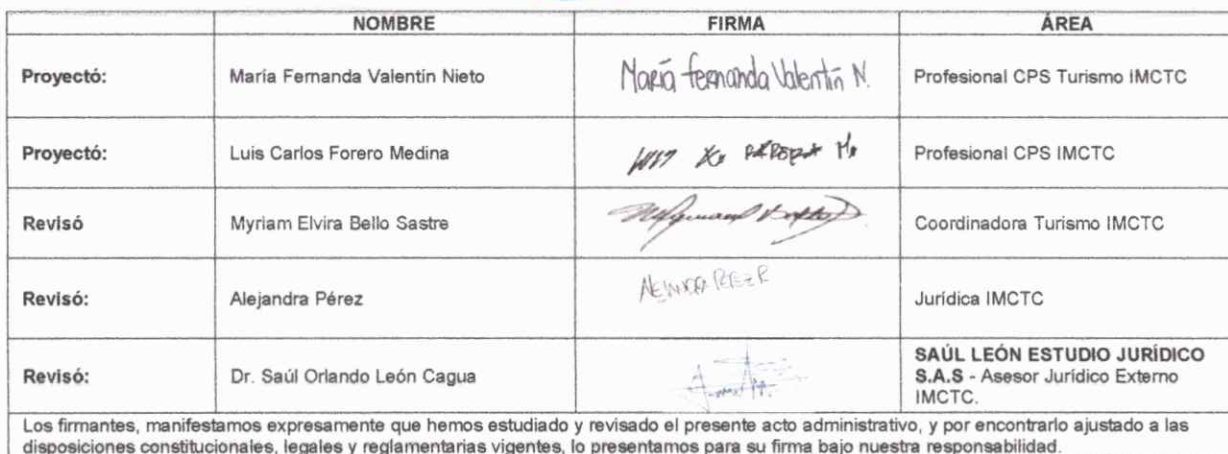 NOMBRE FIRMA ÁREA
Proyectó: María Fernanda Valentín Nieto María fernanda Valentín N. Profesional CPS Turismo IMCTC
Proyectó: Luis Carlos Forero Medina Profesional CPS IMCTC
Revisó Myriam Elvira Bello Sastre Coordinadora Turismo IMCTC
Revisó: Alejandra Pérez ALEJANDRA PEREZ R Jurídica IMCTC
Revisó: Dr. Saúl Orlando León Cagua SAÚL LEÓN ESTUDIO JURÍDICO
S.A.S - Asesor Jurídico Externo
IMCTC.
Los firmantes, manifestamos expresamente que hemos estudiado y revisado el presente acto administrativo, y por encontrarlo ajustado a las
disposiciones constitucionales, legales y reglamentarias vigentes, lo presentamos para su firma bajo nuestra responsabilidad.